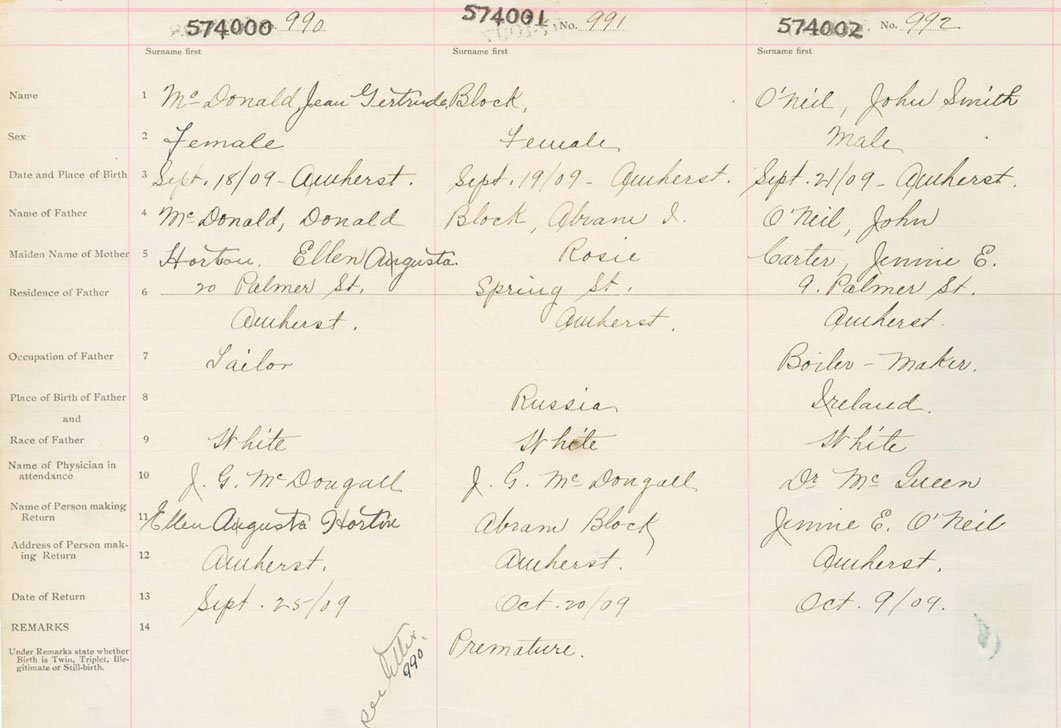 574000 No. 990. 574001 No. 991 574002 No. 992
Surname first Surname first Surname first
Name 1 McDonald, Jean Gertrude Block, O'Neil, John Smith
Sex 2 Female Female Male
Date and Place of Birth 3 Sept. 18/09 - Amherst. Sept. 19/09 - Amherst. Sept. 21/09 - Amherst.
Name of Father 4 McDonald, Donald Block, Abram I. O'Neil, John
Maiden Name of Mother 5 Horton, Ellen Augusta Rosie Carter, Jennie E.
Residence of Father 6 20 Palmer St. Spring St. 9. Palmer St.
Amherst. Amherst. Amherst.
Occupation of Father 7 Tailor Boiler-Maker.
Place of Birth of Father 8 Russia Ireland.
and
Race of Father 9 White White White
Name of Physician in
attendance 10 J. G. McDougall J. G. McDougall Dr McQueen
Name of Person making
Return 11 Ellen Augusta Hortin Abram Block Jennie E. O'Neil
Address of Person mak-
ing Return 12 Amherst. Amherst. Amherst.
Date of Return 13 Sept. 25/09 Oct. 20/09 Oct. 9/09.
REMARKS 14
Under Remarks state whether
Birth is Twin, Triplet, Ille-
gitimate or Still-birth.
Premature.
see letter
990.